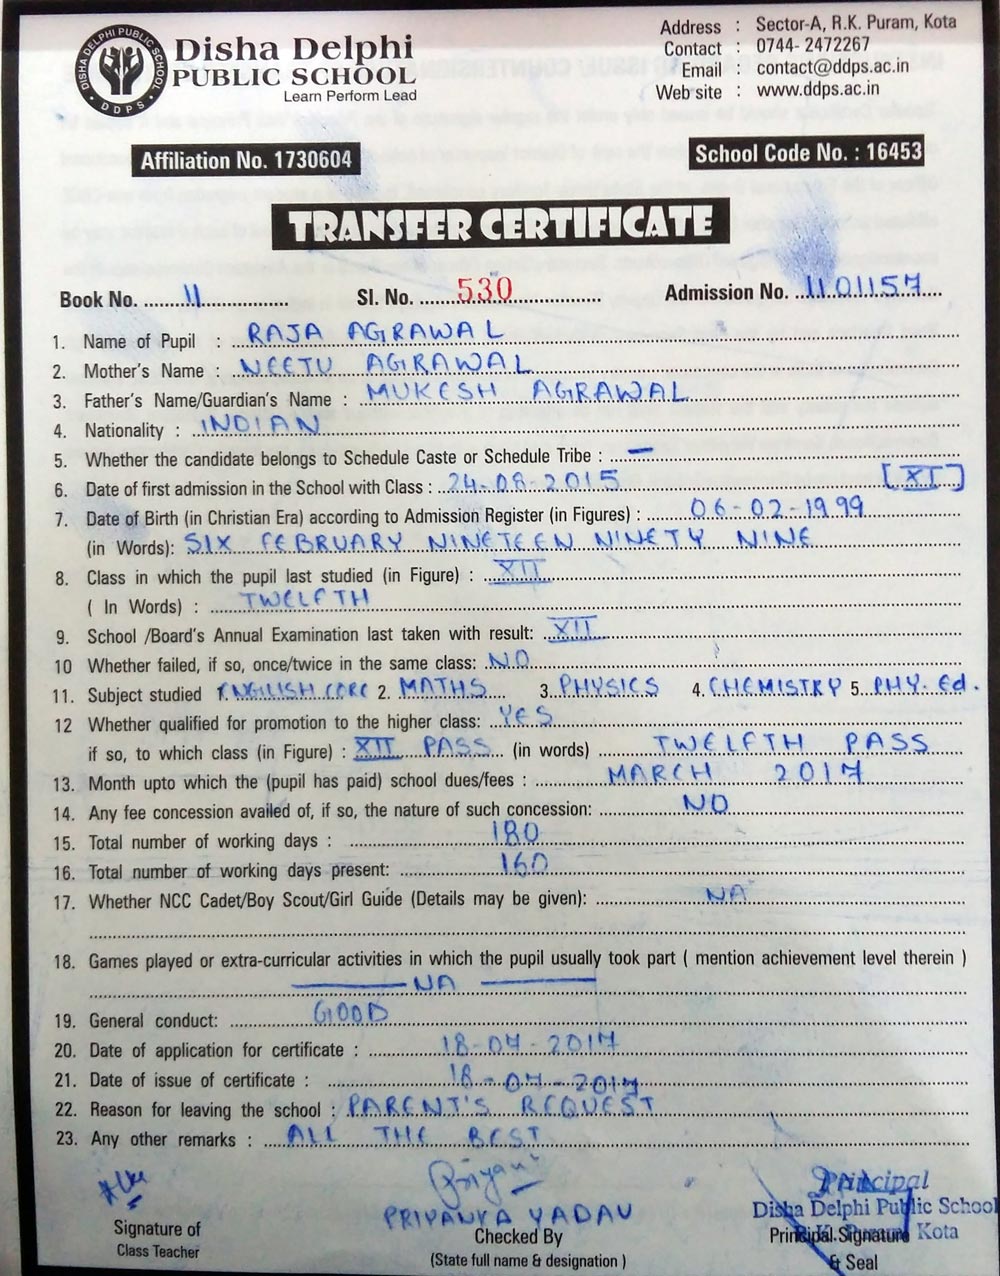 DISHA DELPHI PUBLIC SCHOOL
DDPS
Disha Delphi
PUBLIC SCHOOL
Learn Perform Lead
Address : Sector-A, R.K. Puram, Kota
Contact : 0744- 2472267
Email : contact@ddps.ac.in
Web site : www.ddps.ac.in
Affiliation No. 1730604
School Code No. : 16453
TRANSFER CERTIFICATE
Book No. 11 Sl. No. 530 Admission No. 1101157
1. Name of Pupil : RAJA AGRAWAL
2. Mother's Name : NEETU AGRAWAL
3. Father's Name/Guardian's Name : MUKESH AGRAWAL
4. Nationality : INDIAN
5. Whether the candidate belongs to Schedule Caste or Schedule Tribe : —
6. Date of first admission in the School with Class : 24-08-2015 [XI]
7. Date of Birth (in Christian Era) according to Admission Register (in Figures) : 06-02-1999
(in Words): SIX FEBRUARY NINETEEN NINETY NINE
8. Class in which the pupil last studied (in Figure) : XII
( In Words) : TWELFTH
9. School /Board's Annual Examination last taken with result: XII
10 Whether failed, if so, once/twice in the same class: NO
11. Subject studied 1. ENGLISH CORE 2. MATHS 3. PHYSICS 4. CHEMISTRY 5. PHY. Ed.
12 Whether qualified for promotion to the higher class: YES
if so, to which class (in Figure) : XII PASS (in words) TWELFTH PASS
13. Month upto which the (pupil has paid) school dues/fees : MARCH 2017
14. Any fee concession availed of, if so, the nature of such concession: NO
15. Total number of working days : 180
16. Total number of working days present: 160
17. Whether NCC Cadet/Boy Scout/Girl Guide (Details may be given): NA
18. Games played or extra-curricular activities in which the pupil usually took part ( mention achievement level therein )
NA
19. General conduct: GOOD
20. Date of application for certificate : 18-07-2017
21. Date of issue of certificate : 18-07-2017
22. Reason for leaving the school : PARENT'S REQUEST
23. Any other remarks : ALL THE BEST
Priyanka
PRIYANKA YADAV
Principal
Disha Delphi Public School
R.K. Puram, Kota
Signature of
Class Teacher
Checked By
(State full name & designation )
Principal Signature
& Seal